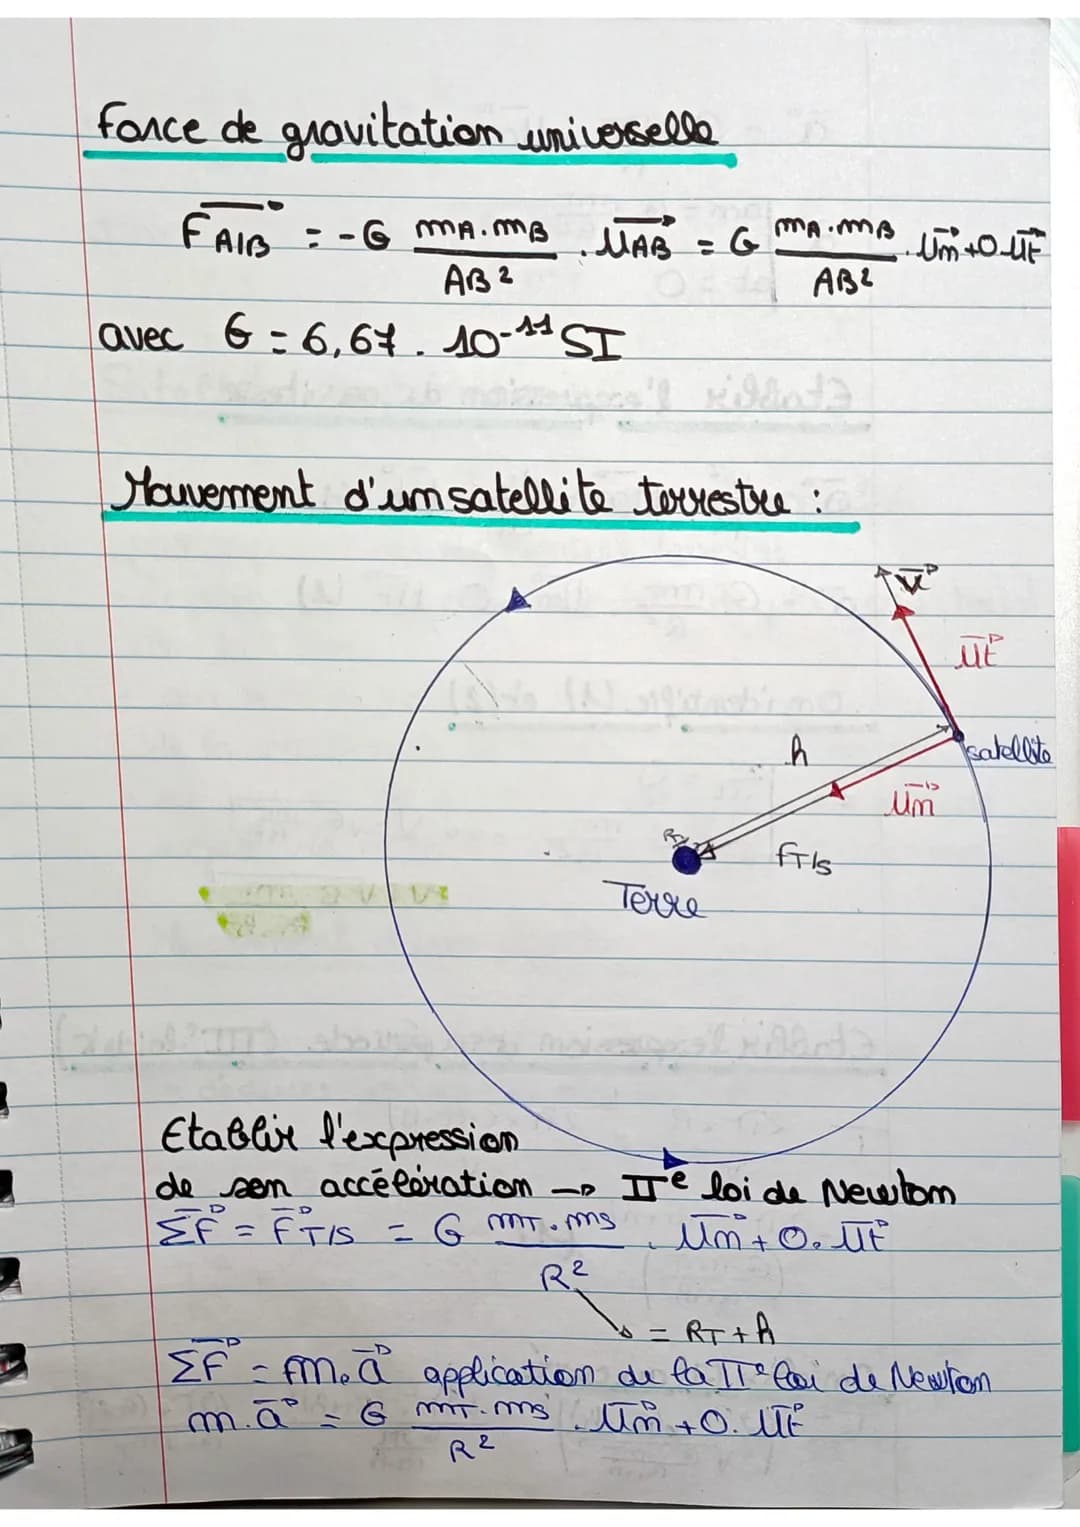 Force de gravitation universelle
F⃗A/B = -G mA.mB/AB² . u⃗AB = G mA.mB/AB² . u⃗n + 0.u⃗t
avec G = 6,67 . 10⁻¹¹ SI
Mouvement d'un satellite terrestre :
v⃗
u⃗t
h
satellite
u⃗n
RT
fT/s
Terre
Etablir l'expression
de son accélération → IIᵉ loi de Newton
ΣF⃗ = F⃗T/S = G mT.ms/R² . u⃗n + 0. u⃗t
= RT + h
ΣF⃗ = m.a⃗ application de la IIᵉ loi de Newton
m.a⃗ = G mT.ms/R² . u⃗n + 0. u⃗t